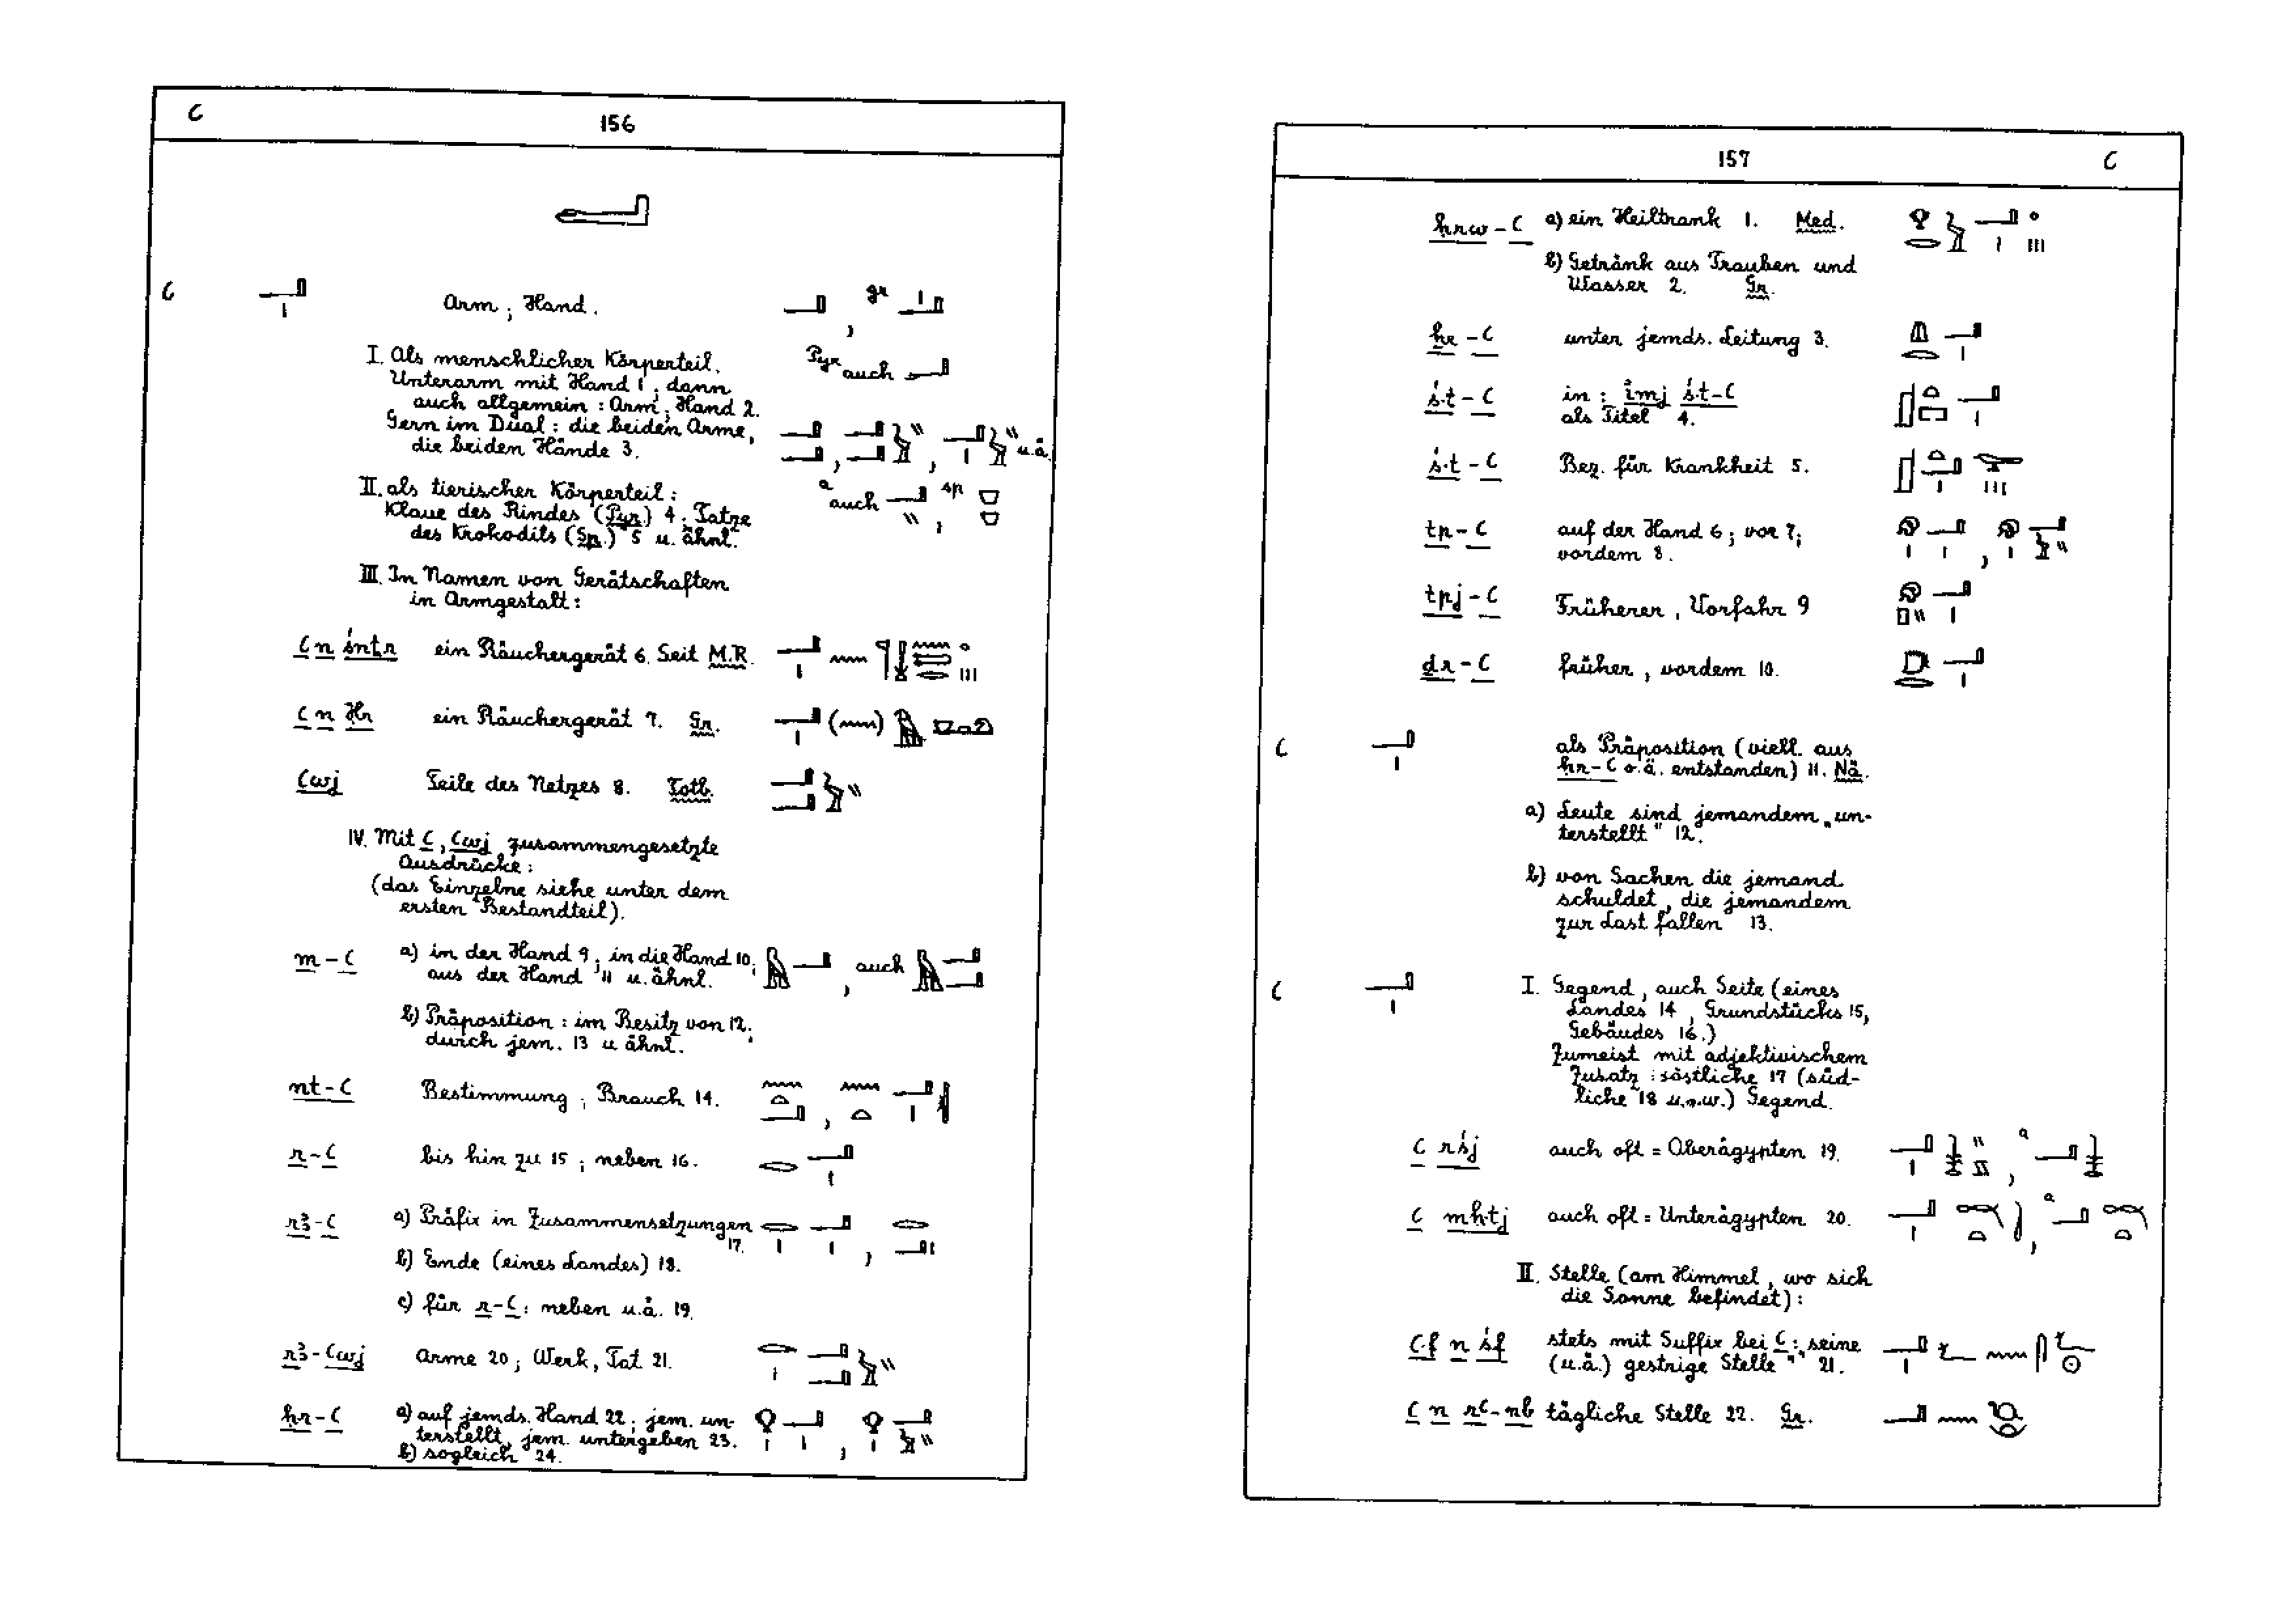 C
156
C
Arm; Hand.
gr
I. Als menschlicher Körperteil.
Pyr auch
Unterarm mit Hand 1; dann
auch allgemein: Arm; Hand 2.
Gern im Dual: die beiden Arme,
die beiden Hände 3.
u.ä.
II. als tierischer Körperteil:
a auch
sp
Klaue des Rindes (Pyr.) 4. Tatze
des Krokodils (Sp.) 5 u. ähnl.
III. In Namen von Gerätschaften
in Armgestalt:
C n śntr ein Räuchergerät 6. Seit M.R.
C n Ḥr ein Räuchergerät 7. Gr.
Cwj Teile des Netzes 8. Totb.
IV. Mit C, Cwj zusammengesetzte
Ausdrücke:
(das Einzelne siehe unter dem
ersten Bestandteil).
m-C a) in der Hand 9; in die Hand 10; auch
aus der Hand 11 u. ähnl.
b) Präposition: im Besitz von 12;
durch jem. 13 u ähnl.
nt-C Bestimmung; Brauch 14.
r-C bis hin zu 15; neben 16.
r3-C a) Präfix in Zusammensetzungen
17.
b) Ende (eines Landes) 18.
c) für r-C: neben u.ä. 19.
r3-Cwj Arme 20; Werk, Tat 21.
ḥr-C a) auf jemds. Hand 22; jem. un-
terstellt, jem. untergeben 23.
b) sogleich 24.
157
C
ḥrw-C a) ein Heiltrank 1. Med.
b) Getränk aus Trauben und
Wasser 2. Gr.
ẖr-C unter jemds. Leitung 3.
ś.t-C in: imj ś.t-C
als Titel 4.
ś.t-C Bez. für Krankheit 5.
tp-C auf der Hand 6; vor 7;
vordem 8.
tpj-C Früherer, Vorfahr 9
ḏr-C früher, vordem 10.
C als Präposition (viell. aus
ẖr-C o.ä. entstanden) 11. Nä.
a) Leute sind jemandem „un-
terstellt" 12.
b) von Sachen die jemand
schuldet, die jemandem
zur Last fallen 13.
C I. Gegend, auch Seite (eines
Landes 14, Grundstücks 15,
Gebäudes 16.)
Zumeist mit adjektivischem
Zusatz: östliche 17 (süd-
liche 18 u.s.w.) Gegend.
C rśj auch oft = Oberägypten 19.
a
C mḥtj auch oft = Unterägypten 20.
a
II. Stelle (am Himmel, wo sich
die Sonne befindet):
C.f n śf stets mit Suffix bei C: seine
(u.ä.) gestrige Stelle " 21.
C n rC-nb tägliche Stelle 22. Gr.